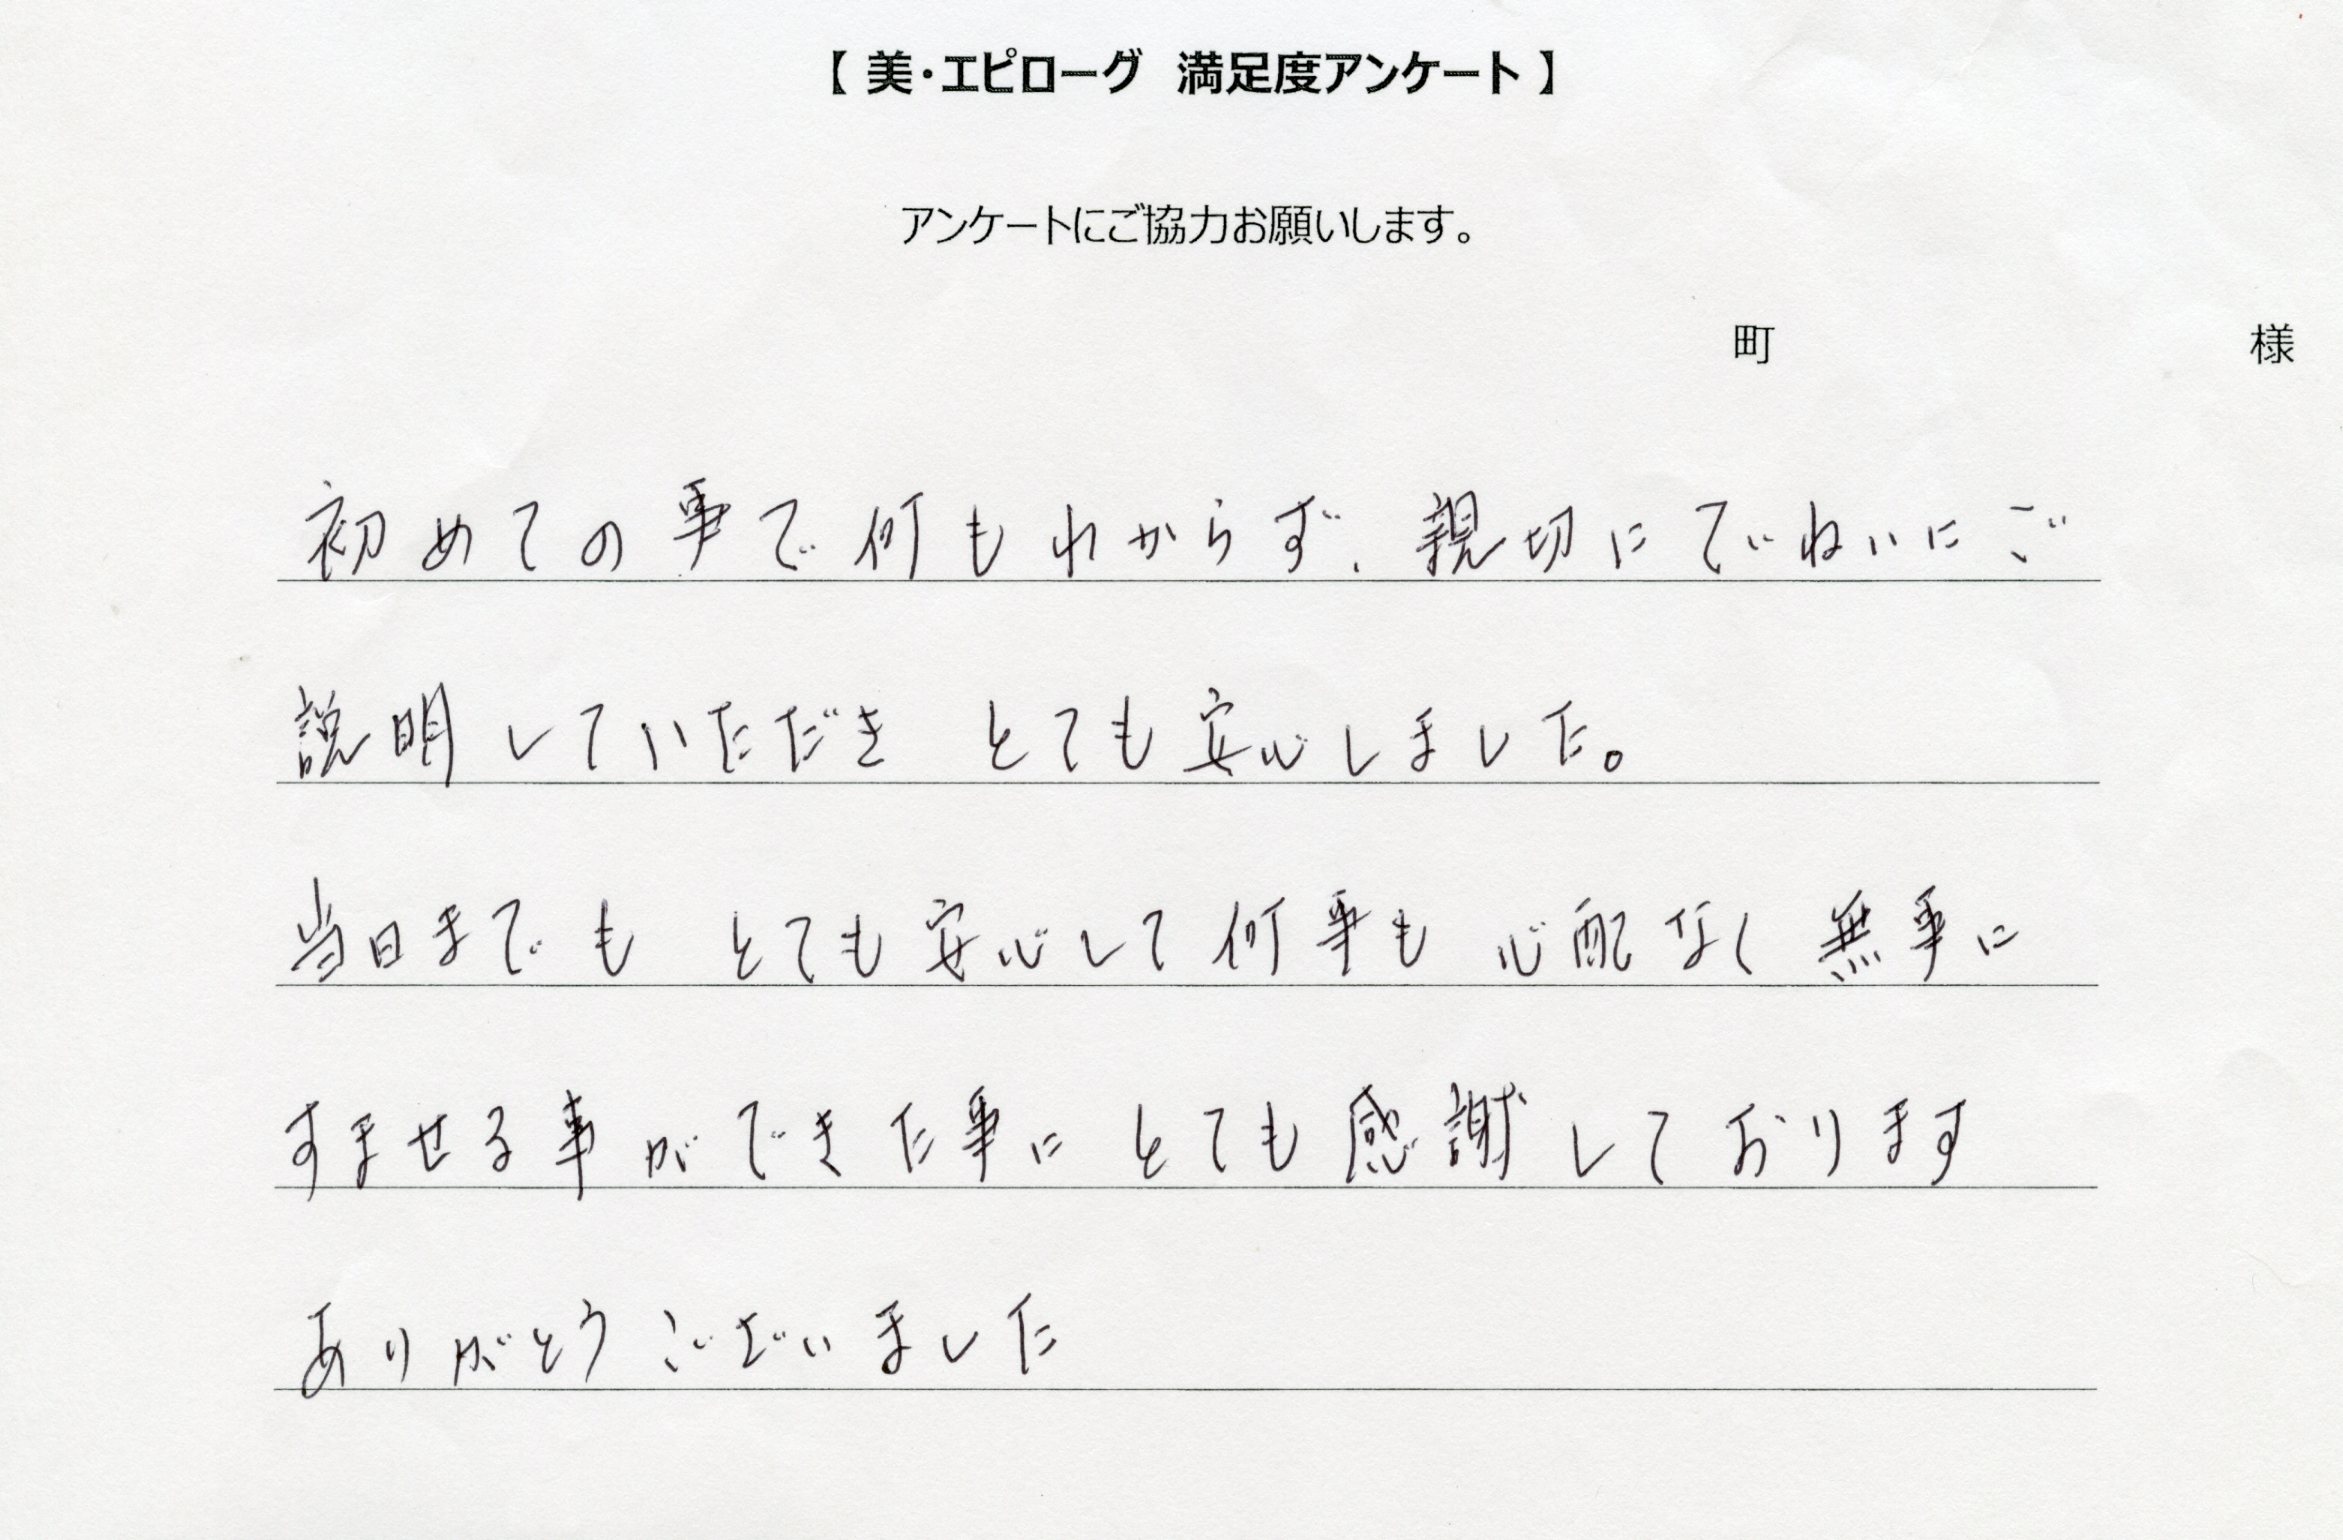 【 美・エピローグ　満足度アンケート 】
アンケートにご協力お願いします。
町　様
初めての事で何もわからず、親切にていねいにご
説明していただき とても安心しました。
当日までも とても安心して何事も 心配なく無事に
すませる事ができた事に とても感謝しております
ありがとうございました